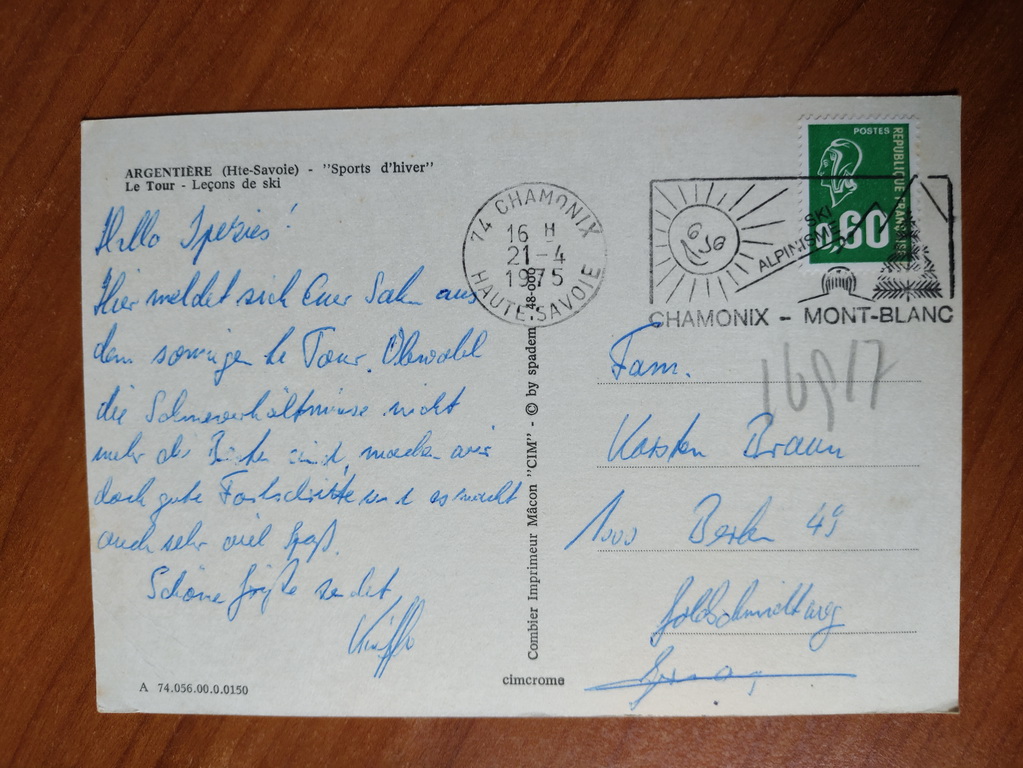 ARGENTIÈRE (Hte-Savoie) - "Sports d'hiver"
Le Tour - Leçons de ski
Hallo Spezies!
Hier meldet sich Euer Sohn aus
dem sonnigen le Tour. Obwohl
die Schneeverhältnisse nicht
mehr die sind, machen wir
doch gute Fortschritte und es macht
auch sehr viel Spaß.
Schöne Grüße sendet
A 74.056.00.0.0150
Combier Imprimeur Mâcon "CIM" - © by spadem 48-000
cimcrome
74 CHAMONIX
16 H
21-4
1975
HAUTE-SAVOIE
SKI
ALPINISME
CHAMONIX - MONT-BLANC
POSTES
REPUBLIQUE FRANCAISE
0,60
Fam.
Karsten Braun
1000 Berlin 49
Goldschmidtweg